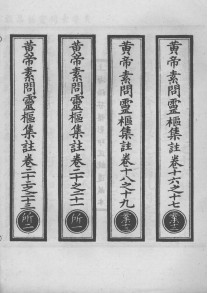 黄帝素問靈樞集註卷十六之十七
黄帝素問靈樞集註卷十八之十九
黄帝素問靈樞集註卷二十之二十一
黄帝素問靈樞集註卷二十二之二十三